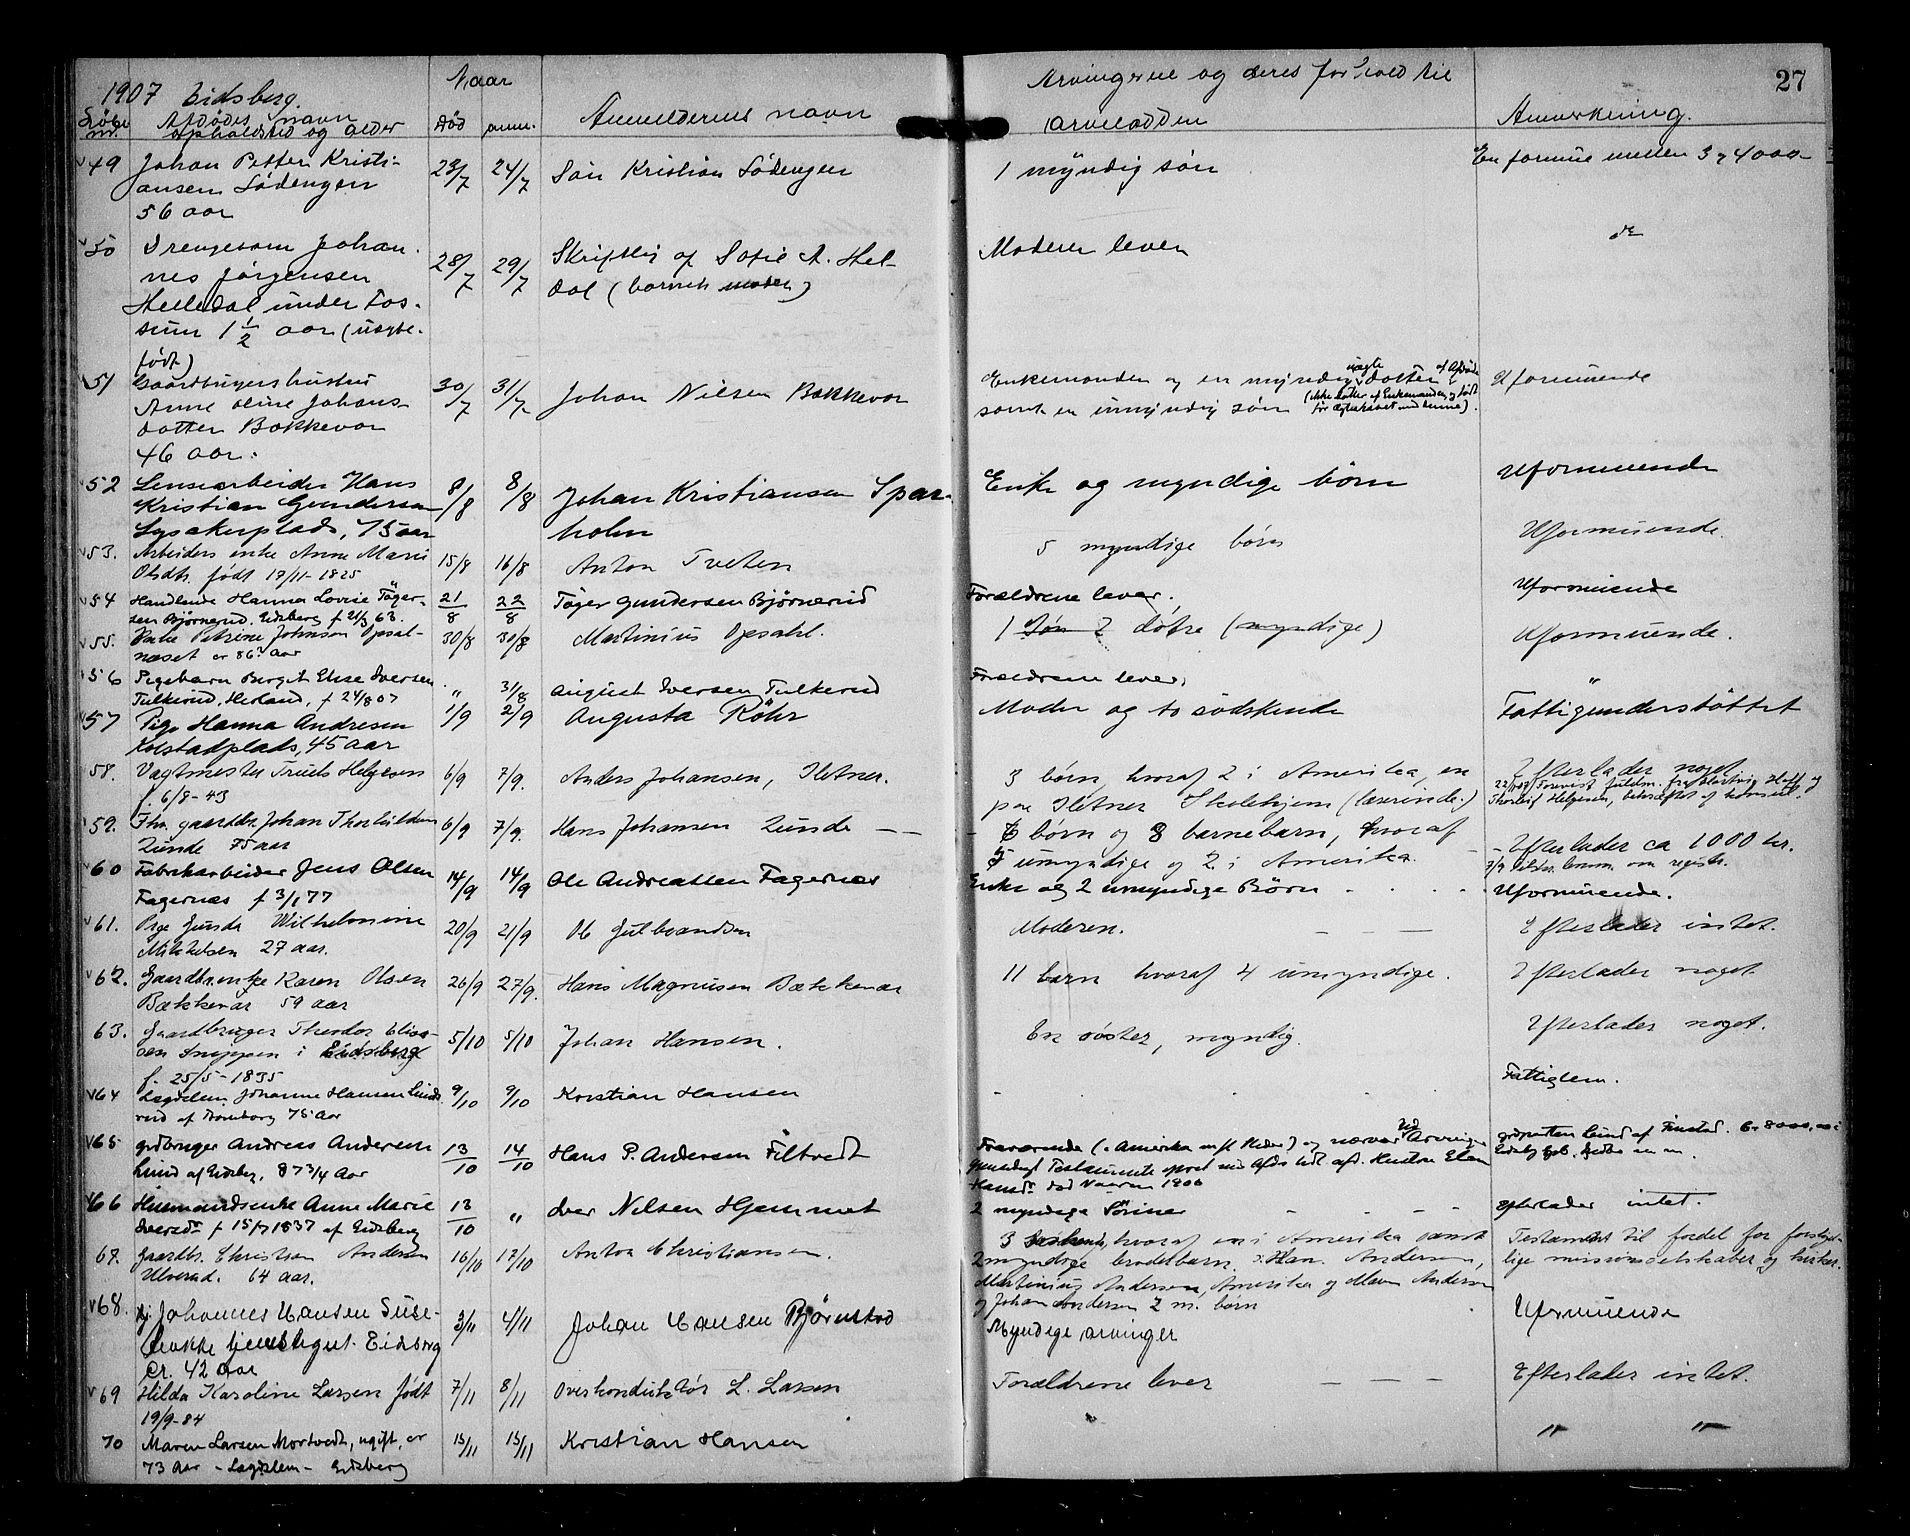 1907 Eidsberg.
Naar
Arvingerne og deres forhold til
27
Löbe
Afdödes navn
Anmelderens navn
arveladden
Anmerkning.
nr.
opholdsted og alder
död
anm.
49
Johan Petter Kristi-
ansen Lödengen
56 aar
23/7
24/7
Sön Kristian Lödengen
1 myndig sön
En formue mellem 3 à 4000
50
Drengebarn Johan-
nes Jörgensen
Helledal under Fos-
sum 1 1/2 aar (uægte-
født)
28/7
29/7
Skriftlig af Sofie A. Hel-
dal (barnets moder)
Moderen lever
51
Gaardbrugers hustru
Anne Oline Johans-
datter Bakkevar
46 aar.
30/7
31/7
Johan Nilsen Bakkevar
uægte
af Afdöde
Enkemanden og en myndig datter
samt en umyndig sön
(ikke datter af Enkemanden, og født
før Ægteskabet med denne).
Uformuende
52
Lensearbeider Hans
Kristian Gundersen
Lysakerplads, 75 aar
8/8
8/8
Johan Kristiansen Spar-
holm
Enke og myndige börn
Uformuende
53.
Arbeiders enke Anne Marie
Olsdtr. født 17/11-1825
15/8
16/8
Anton Tveten
5 myndige børn
Uformuende.
54
Handlende Hanna Lovise Töger-
sen Bjørnerud, Eidsberg f 21/3 63.
21/8
22/8
Töger Gundersen Bjørnerud
Forældrene lever.
Uformuende
55.
Enke Petrine Johnsen Opsal-
næset er 86? aar
30/8
30/8
Martinius Opsahl.
1 Søn 2 døtre (myndige)
Uformuende.
56
Pigebarn Birgit Elise Iversen
Tulkerud, Herland, f 24/8 07
"
31/8
August Iversen Tulkerud
Forældrene lever.
"
57
Pige Hanna Andresen
Kolstadplads, 45 aar
1/9
2/9
Augusta Röhr
Moder og to södskende
Fattigunderstöttet
58.
Vagtmester Truls Helgesen
f. 6/8-43
6/9
7/9.
Anders Johansen, Sletner.
3 børn, hvoraf 2 i Amerika, en
paa Sletner Skolehjem (lærerinde.)
Efterlader noget
59.
Fhv. gaardbr. Johan Thorkildsen
Lunde 75 aar
6/9
7/9.
Hans Johansen Lunde
6 børn og 8 barnebarn, hvoraf
5 umyndige og 2 i Amerika.
Efterlader ca 1000 kr.
60
Fabrikarbeider Jens Olsen
Fagernæs f 3/1 77
14/9
14/9
Ole Andreassen Fagernæs
Enke og 2 umyndige Børn
Uformuende.
61.
Pige Gunda Wilhelmine
Mikkelsen 27 aar.
20/9
21/9
Ole Gulbrandsen
Moderen.
Efterlader intet.
62.
Gaardbr.enke Karen Olsen
Bækkevar 59 aar
26/9
27/9.
Hans Magnusen Bækkevar
11 barn hvoraf 4 umyndige.
Efterlader noget
63.
Gaardbruger Theodor Elias-
sen Snippen i Eidsberg
f. 25/5-1835
5/10
5/10
Johan Hansen.
En søster, myndig.
Efterlader noget.
64
Lægdslem Johanne Hansen
75 aar
9/10
9/10
Kristian Hansen
Fattiglem.
65
grdbruger Andreas Andersen
Lund af Eidsberg, 87 3/4 Aar
13/10
14/10
Hans P. Andersen Filtvedt
66
Husmandsenke Anne Marie
Iversdtr f 15/7 1837 af Eidsberg
13/10
"
Iver Nilsen Hjemmet
2 myndige Sönner
efterlader intet.
67.
Gaardbr. Christian Andersen
Ulverud. 64 aar.
16/10
17/10
Anton Christiansen.
3 søskende, hvoraf en i Amerika samt
2 myndige broderbarn. Han. Andersen,
Martinius Andersen, Amerika og Maren Andersen
og Johan Andersen 2 m. barn
Testamentet til fordel for forskjel-
lige missionsselskaber og kirker.
68.
Johannes Hansen Suse-
bakke tjenestegut Eidsberg
Cr. 42 aar
3/11
4/11
Johan Hansen Bjørnstad
Myndige arvinger
Uformuende
69
Hilda Karoline Larsen født
19/9-84
7/11
8/11
Overkonduktør L. Larsen
Forældrene lever
Efterlader intet.
70
Maren Larsen Mortvedt, ugift, er
73 aar - Lægdslem - Eidsberg
15/11
15/11
Kristian Hansen
" "